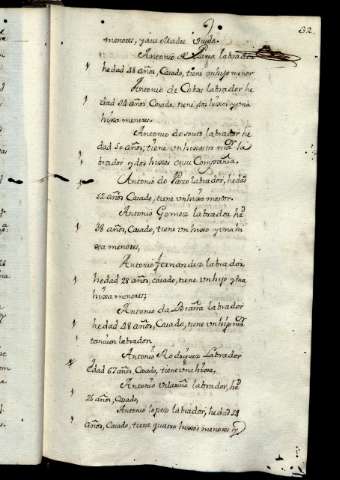 32
menores, y asu Madre Viuda.
Antonio de Parga labrador
hedad 48 años, Casado, tiene un hijo menor
Antonio de Cotos labrador he
dad 44 años, Casado, tiene dos hixos y una
hixa menores
Antonio de souto labrador he
dad 50 años, tiene un hixo
brador y dos hixas en su Compañia.
Antonio de Pazo labrador, hedad
52 años, Casado, tiene un hixo menor.
Antonio Gomez labrador he
38 años, Casado, tiene un hixo y una hi
xa menores,
Antonio fernandez labrador
hedad 28 años, casado, tiene un hijo y una
hixas menores,
Antonio da Braña labrador
hedad 48 años, Casado, tiene un hijo
tambien labrador
Antonio Rodriguez Labrador
Edad 67 años, Casado, tiene una hixa,
Antonio Vilariña labrador, he
26 años, Casado,
Antonio lopez labrador, hedad 28
años, Casado, tiene quatro hixos menores y